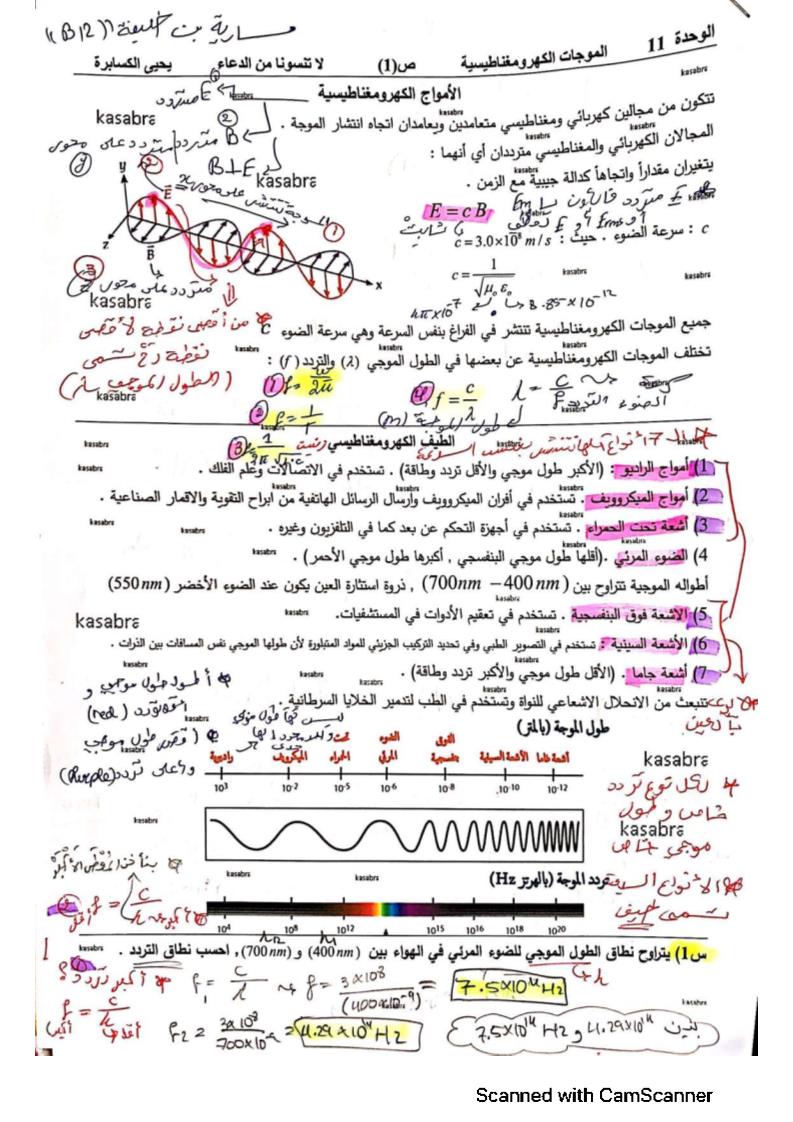 مسارية بنت خليفة "(B12)"
الوحدة 11 الموجات الكهرومغناطيسية ص(1) لا تنسونا من الدعاء يحيى الكسابرة
kasabra
الأمواج الكهرومغناطيسية
تتكون من مجالين كهربائي ومغناطيسي متعامدين ويعامدان اتجاه انتشار الموجة .
المجالان الكهربائي والمغناطيسي مترددان أي أنهما :
يتغيران مقداراً واتجاهاً كدالة جيبية مع الزمن .
E متردد
B متردد
B⊥E
متردد على محور y
kasabra
kasabra
y
E
B
z
x
متردد على محور z
kasabra
E = c B
c : سرعة الضوء . حيث : c = 3.0×10⁸ m/s
ثابت
c = 1/√μ₀ε₀
8.85×10⁻¹²
4π×10⁻⁷
جميع الموجات الكهرومغناطيسية تنتشر في الفراغ بنفس السرعة وهي سرعة الضوء c
تختلف الموجات الكهرومغناطيسية عن بعضها في الطول الموجي (λ) والتردد (f) :
من أقصى نقطة لأقصى
نقطة
(الطول الموجي λ)
kasabra
① f = ω/2π
② f = 1/T
④ f = c/λ
λ = c/f
طول الموجة (m)
الطيف الكهرومغناطيسي
1) أمواج الراديو : (الأكبر طول موجي والأقل تردد وطاقة) . تستخدم في الاتصالات وعلم الفلك .
2) أمواج الميكروويف . تستخدم في أفران الميكروويف وارسال الرسائل الهاتفية من ابراح التقوية والاقمار الصناعية .
3) أشعة تحت الحمراء . تستخدم في أجهزة التحكم عن بعد كما في التلفزيون وغيره .
4) الضوء المرئي .(أقلها طول موجي البنفسجي , أكبرها طول موجي الأحمر) .
أطواله الموجية تتراوح بين (400 nm – 700nm) , ذروة استثارة العين يكون عند الضوء الأخضر (550 nm)
5) الاشعة فوق البنفسجية . تستخدم في تعقيم الأدوات في المستشفيات.
kasabra
6) الأشعة السينية : تستخدم في التصوير الطبي وفي تحديد التركيب الجزيئي للمواد المتبلورة لأن طولها الموجي نفس المسافات بين الذرات .
7) أشعة جاما . (الأقل طول موجي والأكبر تردد وطاقة) .
تنبعث من الانحلال الاشعاعي للنواة وتستخدم في الطب لتدمير الخلايا السرطانية
أطول طول موجي و
أقل تردد (red)
بالعين
أقصر طول موجي
وأعلى تردد (Purple)
طول الموجة (بالمتر)
راديوية الميكرويف تحت الحمراء الضوء المرئي الفوق بنفسجية الأشعة السينية أشعة غاما
10³ 10⁻² 10⁻⁵ 10⁻⁶ 10⁻⁸ 10⁻¹⁰ 10⁻¹²
kasabra
kasabra
لكل نوع تردد
خاص وطول
موجي خاص
تردد الموجة (بالهرتز Hz)
10⁴ 10⁸ 10¹² 10¹⁵ 10¹⁶ 10¹⁸ 10²⁰
الأنواع السبعة
تسمى طيف
f = c/λ
س1) يتراوح نطاق الطول الموجي للضوء المرئي في الهواء بين (400 nm) و (700 nm), احسب نطاق التردد .
أكبر تردد
f₁ = c/λ f = 3×10⁸/(400×10⁻⁹) = 7.5×10¹⁴ Hz
f = c/λ
f₂ = 3×10⁸/700×10⁻⁹ = 4.29×10¹⁴ Hz
بين 4.29×10¹⁴ و 7.5×10¹⁴ Hz
Scanned with CamScanner